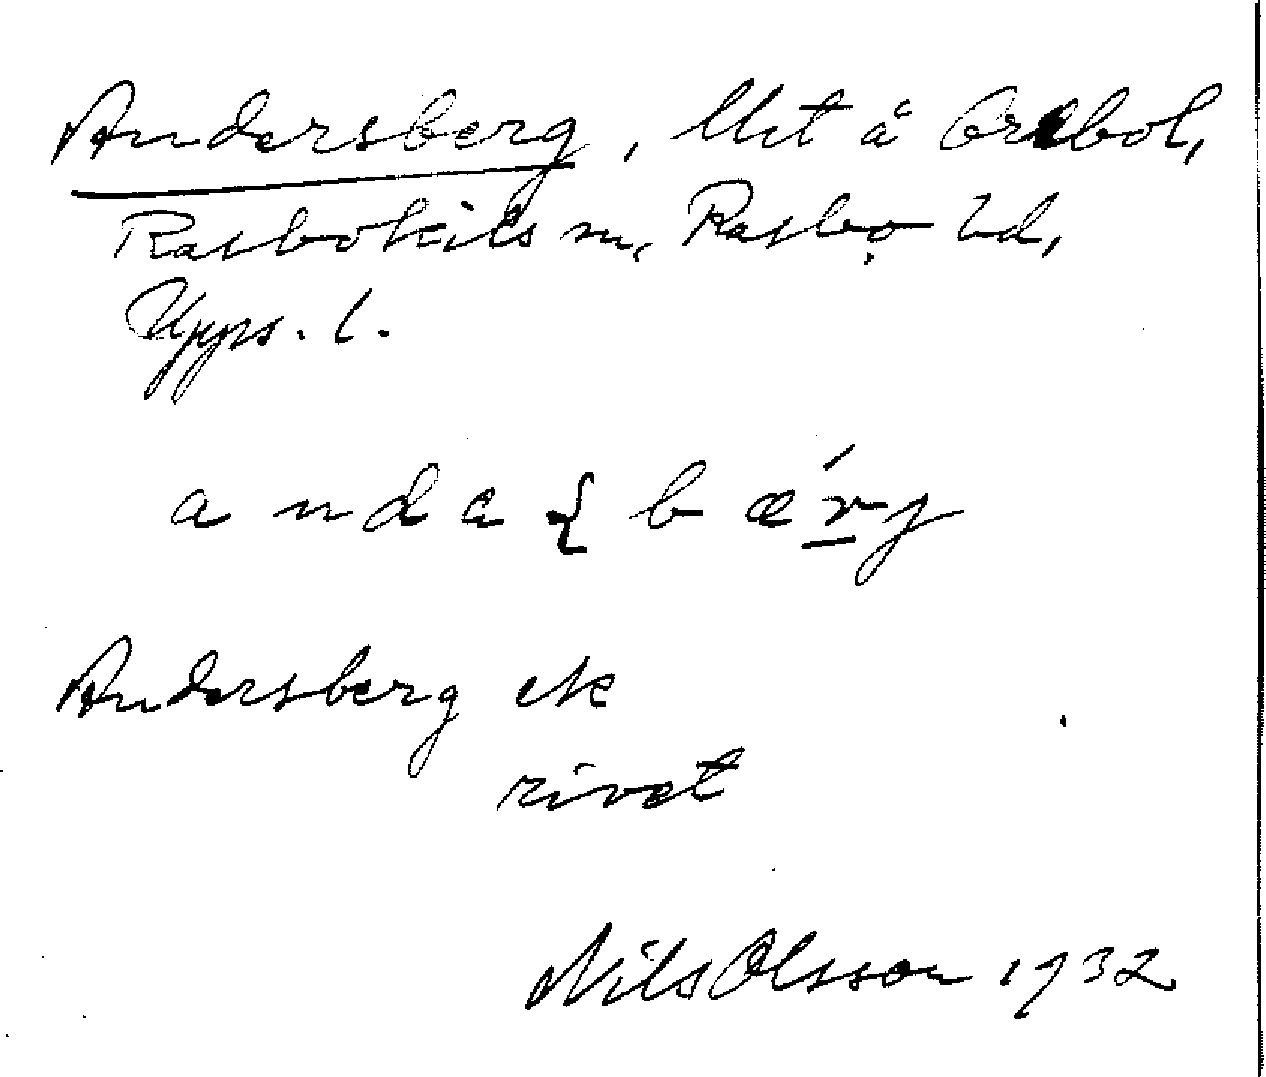 Andersberg, lht å Örebol,
Rasbokils sn, Rasbo hd,
Upps. l.
anda{bærj
Andersberg ek
rivet
Nils Olsson 1932